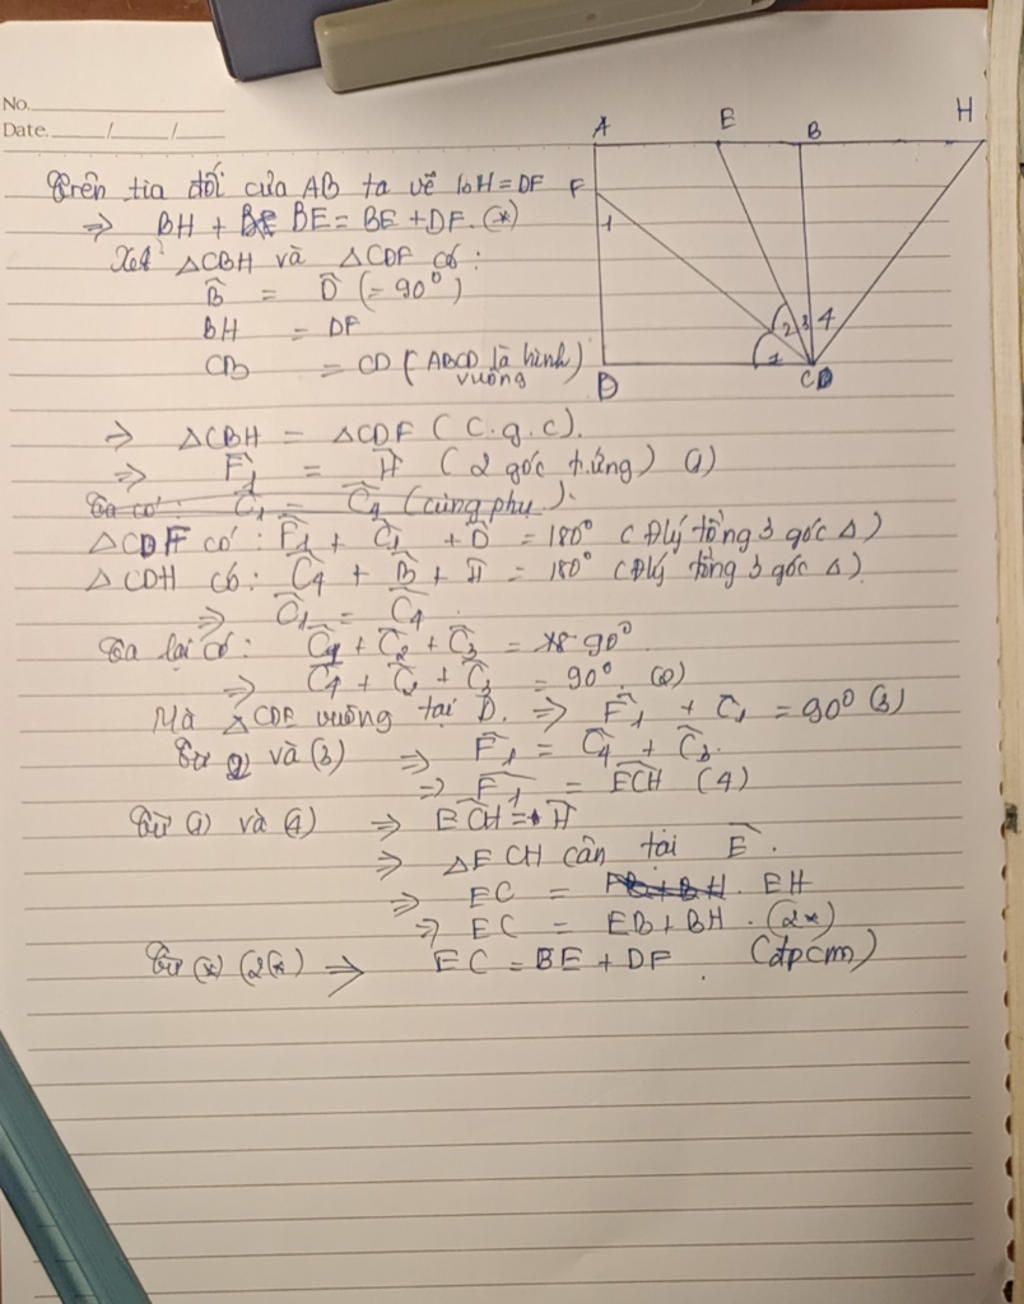 No.
Date. / /
A E B H
F
1
2 3 4
1
D C
Trên tia đối của AB ta vẽ BH = DF
⇒ BH + BE BE = BE + DF. (*)
Xét △CBH và △CDF có:
B̂ = D̂ (= 90°)
BH = DF
CB = CD (ABCD là hình vuông)
⇒ △CBH = △CDF (C.g.c).
⇒ F̂₁ = Ĥ (2 góc t.ứng) (1)
Ta có: Ĉ₁ = Ĉ₄ (cùng phụ).
△CDF có: F̂₁ + Ĉ₁ + D̂ = 180° (Đlý tổng 3 góc △)
△CDH có: Ĉ₄ + B̂ + Ĥ = 180° (Đlý tổng 3 góc △)
⇒ Ĉ₁ = Ĉ₄.
Ta lại có: Ĉ₁ + Ĉ₂ + Ĉ₃ = 90°
⇒ Ĉ₄ + Ĉ₂ + Ĉ₃ = 90°. (2)
Mà △CDF vuông tại D. ⇒ F̂₁ + Ĉ₁ = 90° (3)
Từ 2 và (3) ⇒ F̂₁ = Ĉ₄ + Ĉ₃.
⇒ F̂₁ = ECH (4)
Từ (1) và (4) ⇒ ECH = Ĥ
⇒ △ECH cân tại E.
⇒ EC = EH
⇒ EC = EB + BH. (2*)
Từ (*) (2*) ⇒ EC = BE + DF. (đpcm)